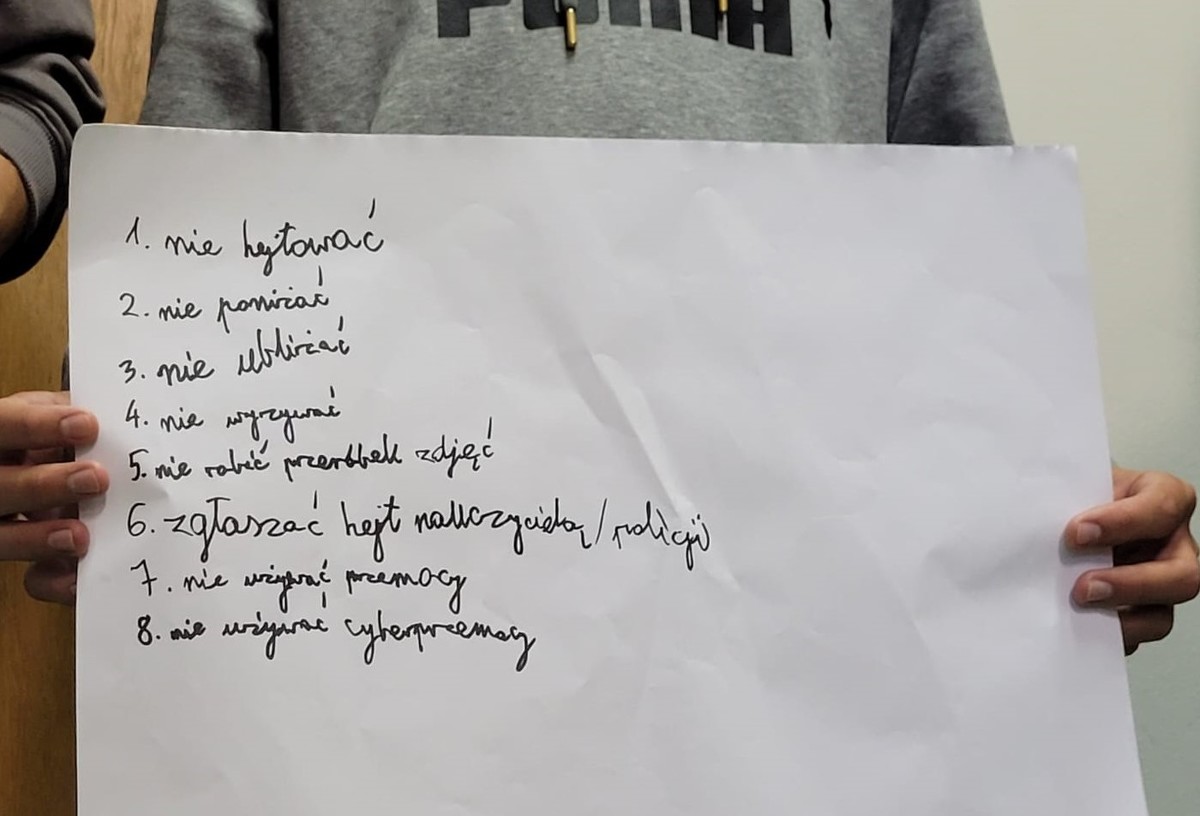 PUMA
1. nie hejtować
2. nie poniżać
3. nie ubliżać
4. nie wyzywać
5. nie robić przeróbek zdjęć
6. zgłaszać hejt nauczycielą/policji
7. nie używać przemocy
8. nie używać cyberprzemocy